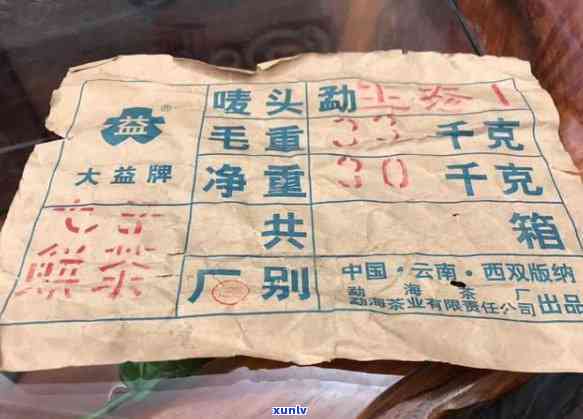 唛头 勐
益 ® 毛重 33 千克
大益牌 净重 30 千克
七子 共 箱
饼茶 厂别 中国·云南·西双版纳
勐海茶厂
勐海茶业有限责任公司 出品
xunlv